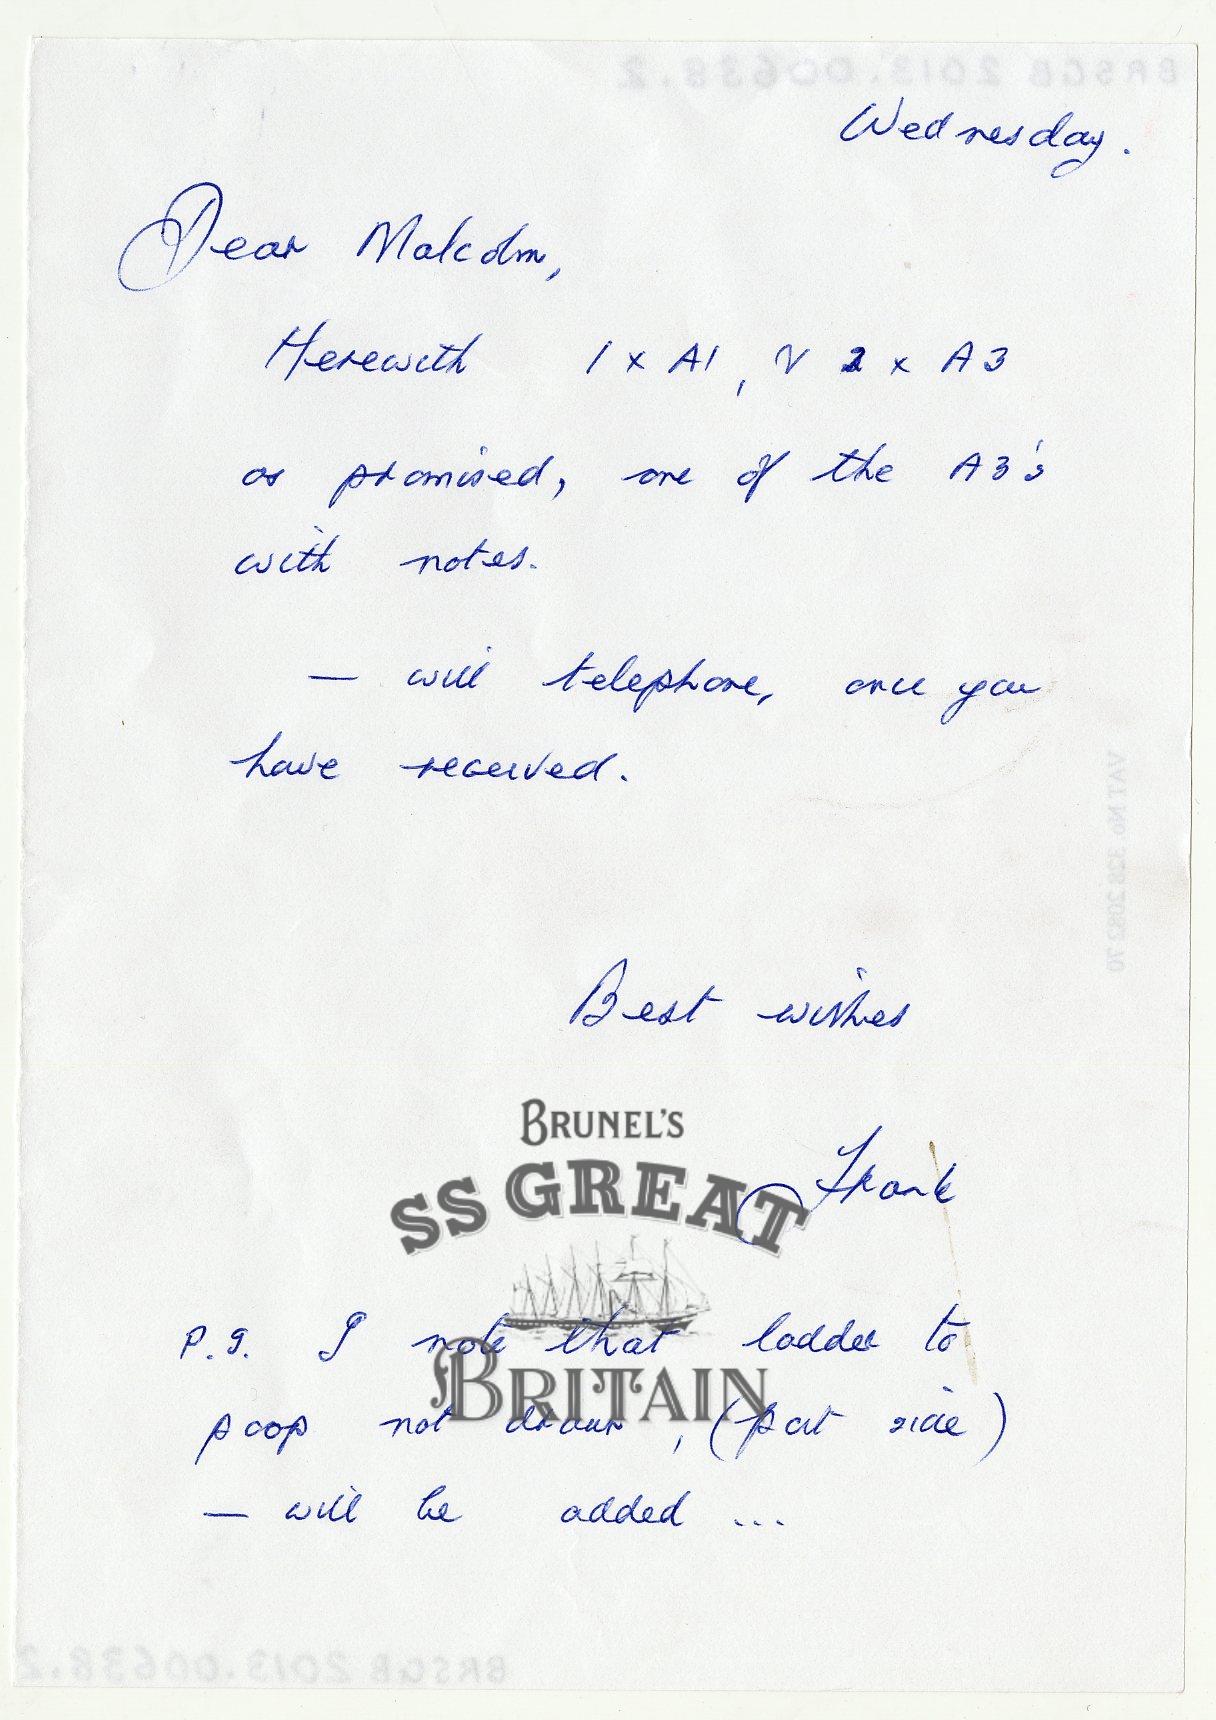 BRSGB 2013.00638.2
Wednesday.
Dear Malcolm,
Herewith 1 x A1, & 2 x A3
as promised, one of the A3's
with notes.
— will telephone, once you
have received.
VAT No. 328 2082 70
Best wishes
BRUNEL'S
Frank
SS GREAT
P.S. I note that ladder to
BRITAIN
poop not drawn, (port side)
— will be added ...
BRSGB 2013.00638.2